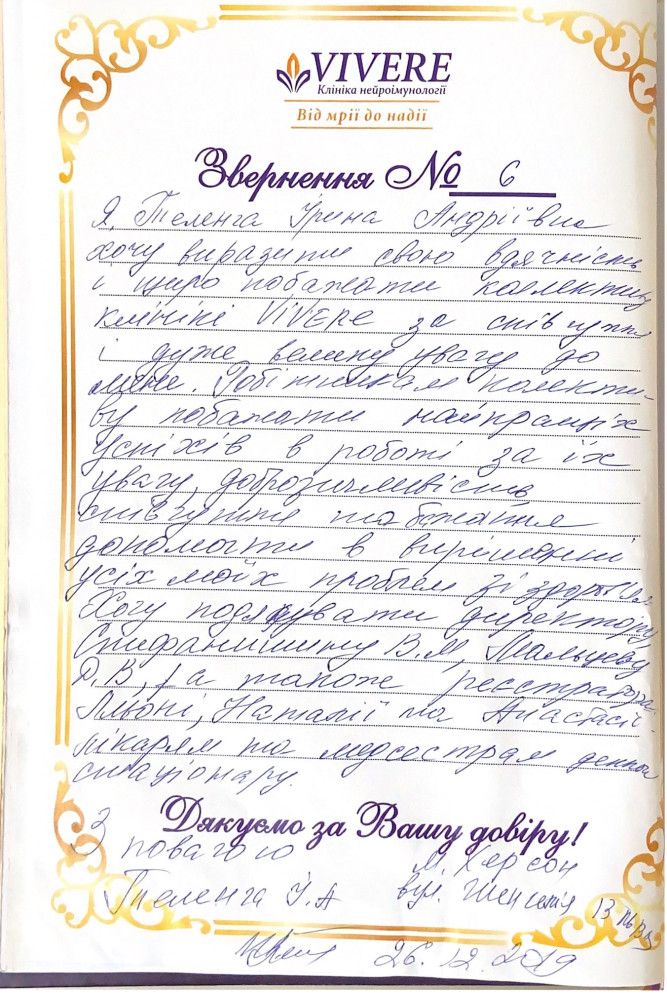 VIVERE
Клініка нейроімунології
Від мрії до надії
Звернення № 6
Я, Теленга Ірина Андріївна
хочу виразити свою вдячність
і щиро побажати колективу
клініки ViVere за співчуття
і дуже велику увагу до
мене. Робітникам колекти-
ву побажати найкращіх
успіхів в роботі за їх
увагу, доброзичливість
співчуття та бажання
допомогти в вирішенні
усіх моїх проблем зі здоров'ям
Хочу подякувати директору
В.М, Мальцеву
Д.В, а також реєстраторам
Альоні, Наталії та Анастасії
лікарям та медсестрам денного
стаціонару.
Дякуємо за Вашу довіру!
З повагою м. Херсон
Теленга І.А вул. 13
26.12.2019